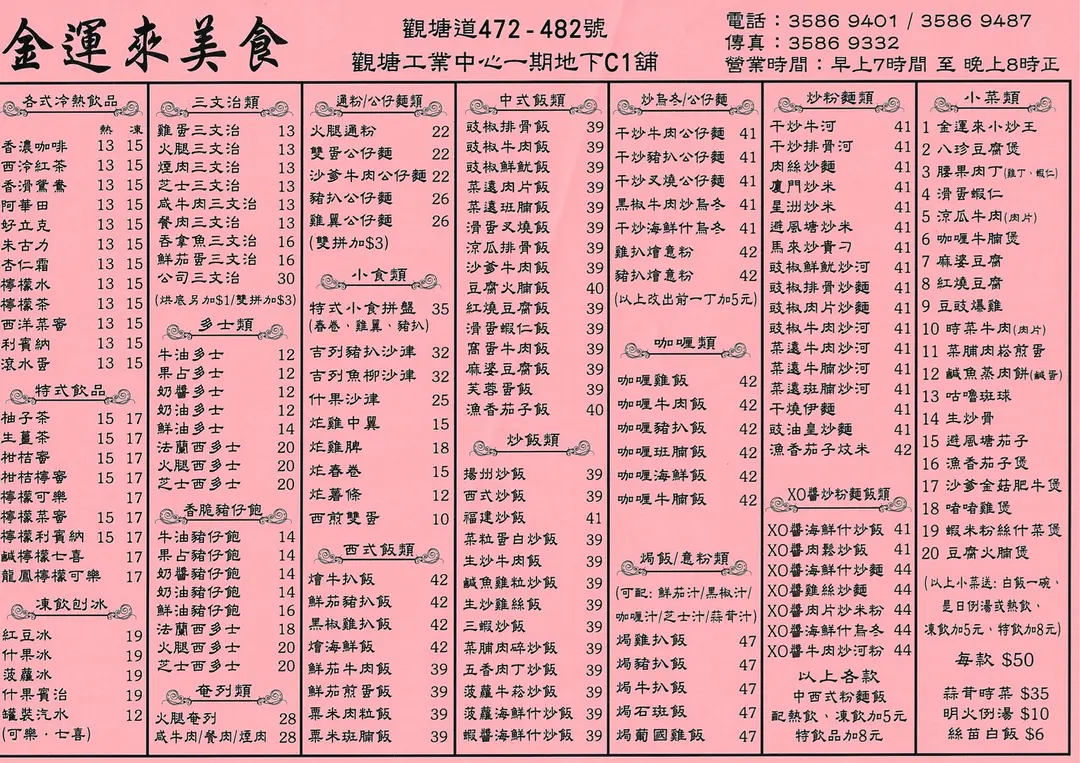 金運來美食
觀塘道472-482號
觀塘工業中心一期地下C1舖
電話：3586 9401 / 3586 9487
傳真：3586 9332
營業時間：早上7時間 至 晚上8時正
各式冷熱飲品
熱 凍
香濃咖啡 13 15
西泠紅茶 13 15
香滑鴛鴦 13 15
阿華田 13 15
好立克 13 15
朱古力 13 15
杏仁霜 13 15
檸檬水 13 15
檸檬茶 13 15
西洋菜蜜 13 15
利賓納 13 15
滾水蛋 13 15
特式飲品
柚子茶 15 17
生薑茶 15 17
柑桔蜜 15 17
柑桔檸蜜 15 17
檸檬可樂 17
檸檬菜蜜 15 17
檸檬利賓納 15 17
鹹檸檬七喜 17
龍鳳檸檬可樂 17
凍飲刨冰
紅豆冰 19
什果冰 19
菠蘿冰 19
什果賓治 19
罐裝汽水 12
(可樂．七喜)
三文治類
雞蛋三文治 13
火腿三文治 13
煙肉三文治 13
芝士三文治 13
咸牛肉三文治 13
餐肉三文治 13
吞拿魚三文治 16
鮮茄蛋三文治 16
公司三文治 30
(烘底另加$1/雙拼加$3)
多士類
牛油多士 12
果占多士 12
奶醬多士 12
奶油多士 12
鮮油多士 14
法蘭西多士 20
火腿西多士 20
芝士西多士 20
香脆豬仔飽
牛油豬仔飽 14
果占豬仔飽 14
奶醬豬仔飽 14
奶油豬仔飽 14
鮮油豬仔飽 16
法蘭西多士 18
火腿西多士 20
芝士西多士 20
奄列類
火腿奄列 28
咸牛肉/餐肉/煙肉 28
通粉/公仔麵類
火腿通粉 22
雙蛋公仔麵 22
沙爹牛肉公仔麵 22
豬扒公仔麵 26
雞翼公仔麵 26
(雙拼加$3)
小食類
特式小食拼盤 35
(春卷、雞翼、豬扒)
吉列豬扒沙律 32
吉列魚柳沙律 32
什果沙律 25
炸雞中翼 15
炸雞脾 18
炸春卷 15
炸薯條 12
西煎雙蛋 10
西式飯類
燴牛扒飯 42
鮮茄豬扒飯 42
黑椒雞扒飯 42
燴海鮮飯 42
鮮茄牛肉飯 39
鮮茄煎蛋飯 39
粟米肉粒飯 39
粟米班腩飯 39
中式飯類
豉椒排骨飯 39
豉椒牛肉飯 39
豉椒鮮魷飯 39
菜遠肉片飯 39
菜遠班腩飯 39
滑蛋叉燒飯 39
涼瓜排骨飯 39
沙爹牛肉飯 39
豆腐火腩飯 40
紅燒豆腐飯 39
滑蛋蝦仁飯 39
窩蛋牛肉飯 39
麻婆豆腐飯 39
芙蓉蛋飯 39
漁香茄子飯 40
炒飯類
揚州炒飯 39
西式炒飯 39
福建炒飯 41
菜粒蛋白炒飯 39
生炒牛肉飯 39
鹹魚雞粒炒飯 39
生炒雞絲飯 39
三蝦炒飯 39
菜脯肉碎炒飯 39
五香肉丁炒飯 39
菠蘿牛菘炒飯 39
菠蘿海鮮什炒飯 39
蝦醬海鮮什炒飯 39
炒烏冬/公仔麵
干炒牛肉公仔麵 41
干炒豬扒公仔麵 41
干炒叉燒公仔麵 41
黑椒牛肉炒烏冬 41
干炒海鮮什烏冬 41
雞扒燴意粉 42
豬扒燴意粉 42
(以上改出前一丁加5元)
咖喱類
咖喱雞飯 42
咖喱牛肉飯 42
咖喱豬扒飯 42
咖喱班腩飯 42
咖喱海鮮飯 42
咖喱牛腩飯 42
焗飯/意粉類
(可配: 鮮茄汁/黑椒汁/
咖喱汁/芝士汁/蒜茸汁)
焗雞扒飯 47
焗豬扒飯 47
焗牛扒飯 47
焗石班飯 47
焗葡國雞飯 47
炒粉麵類
干炒牛河 41
干炒排骨河 41
肉絲炒麵 41
廈門炒米 41
星洲炒米 41
避風塘炒米 41
馬來炒貴刁 41
豉椒鮮魷炒河 41
豉椒排骨炒麵 41
豉椒肉片炒麵 41
豉椒牛肉炒河 41
菜遠牛肉炒河 41
菜遠牛腩炒河 41
菜遠班腩炒河 41
干燒伊麵 41
豉油皇炒麵 41
漁香茄子炆米 42
XO醬炒粉麵飯類
XO醬海鮮什炒飯 41
XO醬肉鬆炒飯 41
XO醬海鮮什炒麵 44
XO醬雞絲炒麵 44
XO醬肉片炒米粉 44
XO醬海鮮什烏冬 44
XO醬牛肉炒河粉 44
以上各款
中西式粉麵飯
配熱飲、凍飲加5元
特飲品加8元
小菜類
1 金運來小炒王
2 八珍豆腐煲
3 腰果肉丁(雞丁、蝦仁)
4 滑蛋蝦仁
5 涼瓜牛肉(肉片)
6 咖喱牛腩煲
7 麻婆豆腐
8 紅燒豆腐
9 豆豉爆雞
10 時菜牛肉(肉片)
11 菜脯肉崧煎蛋
12 鹹魚蒸肉餅(鹹蛋)
13 咕嚕班球
14 生炒骨
15 避風塘茄子
16 漁香茄子煲
17 沙爹金菇肥牛煲
18 啫啫雞煲
19 蝦米粉絲什菜煲
20 豆腐火腩煲
(以上小菜送: 白飯一碗、
是日例湯或熱飲、
凍飲加5元、特飲加8元)
每款 $50
蒜茸時菜 $35
明火例湯 $10
絲苗白飯 $6